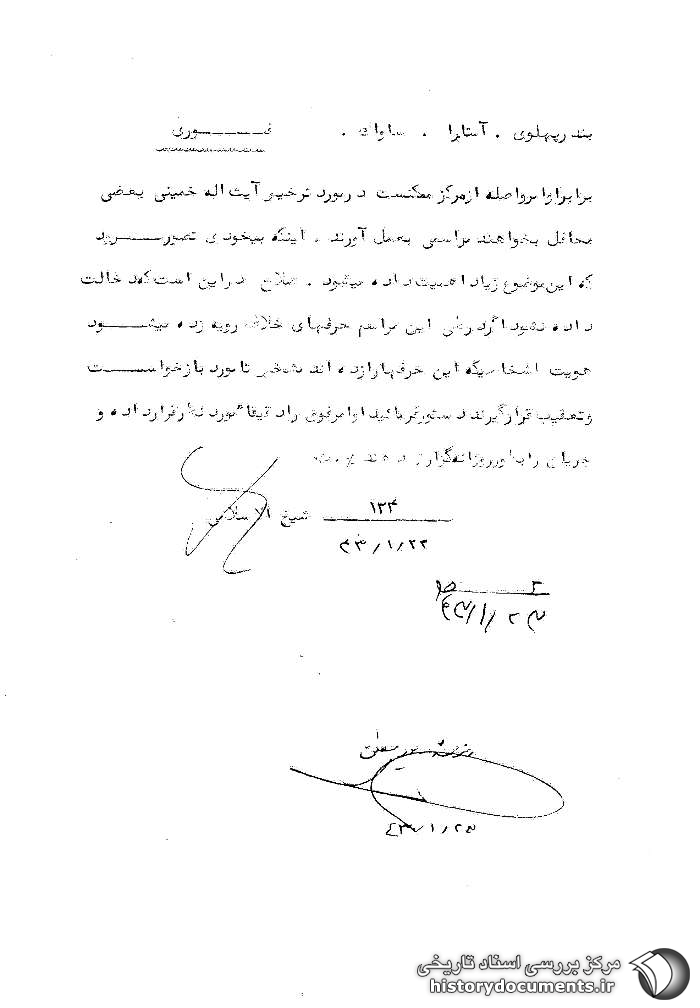 بندرپهلوی . آستارا . ساواک . فـــوری
برابر اوامر واصله از مرکز ممکنست در مورد ترخیص آیت اله خمینی بعضی
محافل بخواهند مراسمی بعمل آورند . اینکه بیخودی تصور رود
که این موضوع زیاد اهمیت داده میشود . صلاح در این است که دخالت
داده نشود اگر در طی این مراسم حرفهای خلاف رویه زده میشود
هویت اشخاصیکه این حرفها را زده اند مشخص تا مورد بازخواست
و تعقیب قرار گیرند دستور فرمائید اوامر فوق را دقیقا مورد نظر قرار داده و
جریان را بطور روزانه گزارش دهند
۱۳۴ شیخ الاسلامی
۴۳/۱/۲۲
۲
۴۳/۱/۲۳
۴۳/۱/۲۳
مرکز بررسی اسناد تاریخی
historydocuments.ir